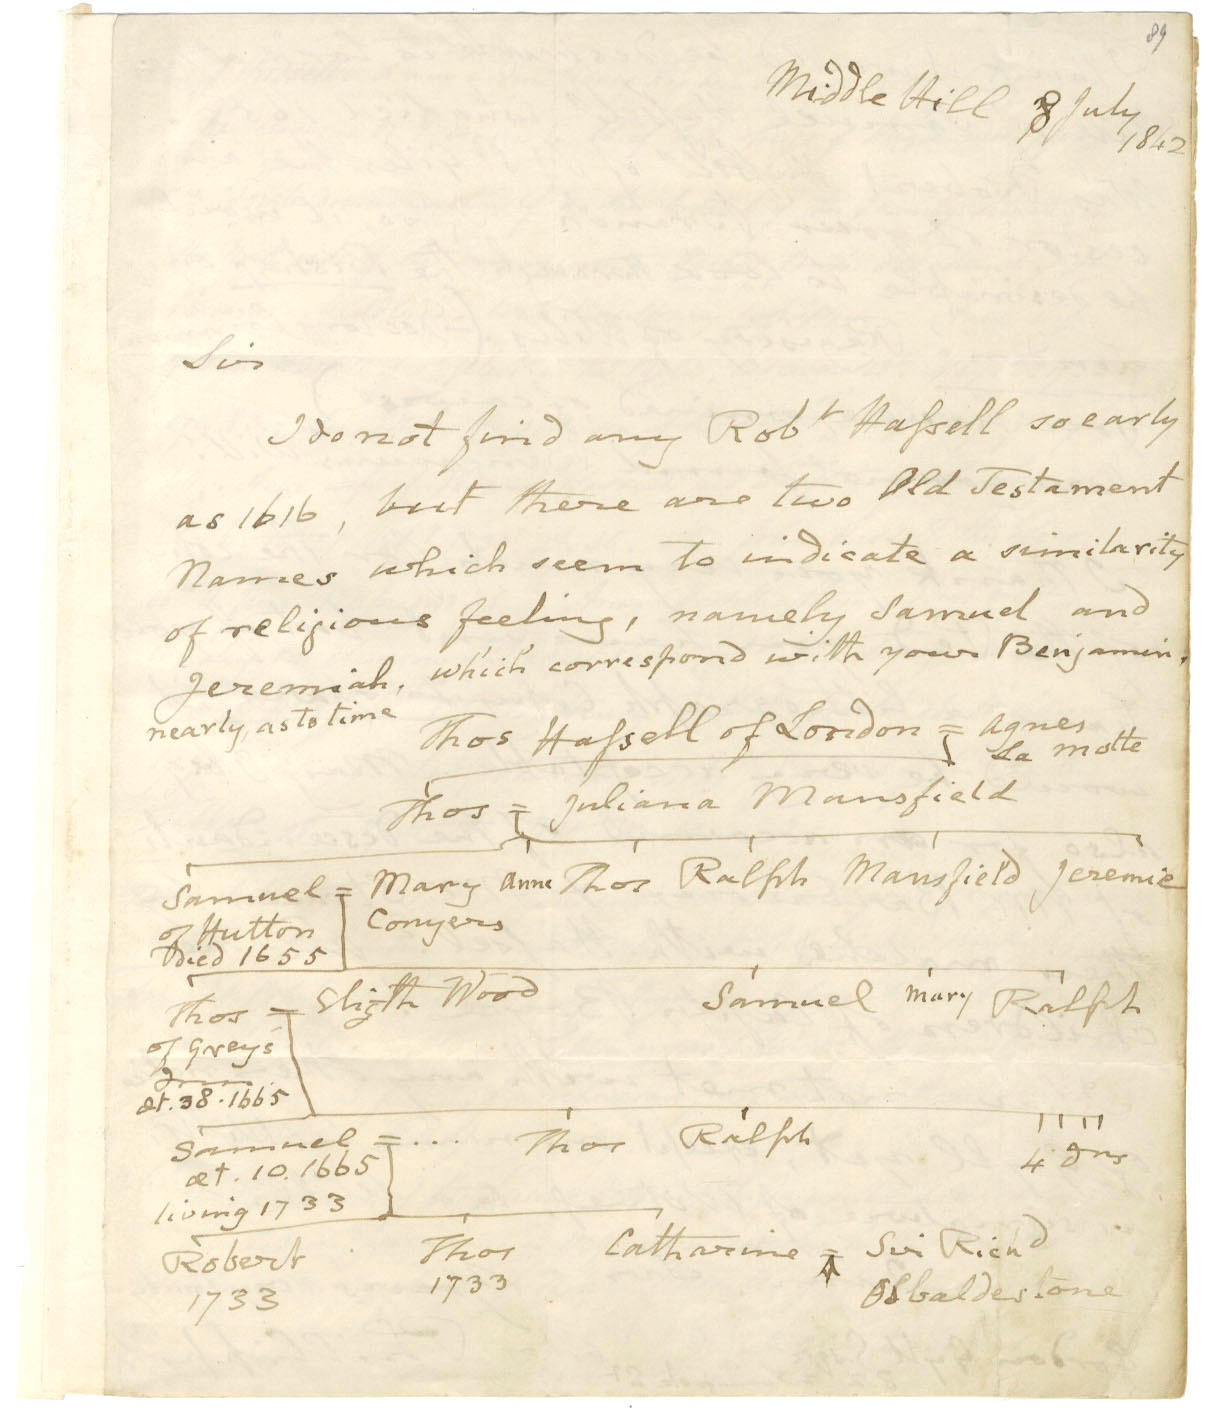 89
Middle Hill 8 July
1842
Sir
I do not find any Robt Haſsell so early
as 1616, but there are two Old Testament
Names which seem to indicate a similarity
of religious feeling, namely Samuel and
Jeremiah, which correspond with your Benjamin,
nearly, as to time
Thos Haſsell of London = Agnes
La motte
Thos = Juliana Mansfield
Samuel = Mary Anne Thos Ralph Mansfield Jeremie
of Hutton Conyers
died 1655
Thos = Eliz'th Wood Samuel Mary Ralph
of Greys
Inn
æt. 38. 1665
Samuel = ... Thos Ralph
æt. 10. 1665 4 drs
living 1733
Robert Thos Catharine = Sir Richd
1733 1733 Osbaldestone